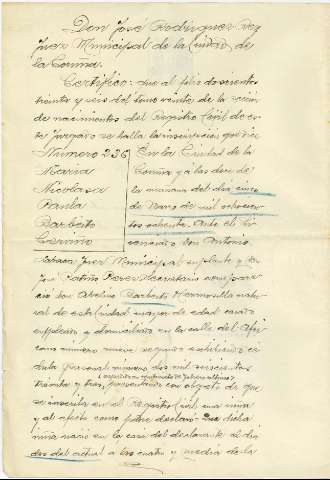 Don José Rodriguez Rey
Juez Municipal de la Ciudad de
la Coruña.
Certifico: que al folio doscientos
treinta y seis del tomo veinte de la seccion
de nacimientos del Registro Civil de es
te Juzgado se halla la inscripcion que dice
Número 236
Maria
Nicolasa
Paula
Barbeito
Cerviño
En la Ciudad de la
Coruña y á las doce de
la mañana del dia cinco
de Marzo de mil ochocien
tos ochenta. Ante el Li
cenciado don Antonio
Juez Municipal suplente y de
José Patiño Perez Secretario compare
ció don Abelino Barbeito Hermosilla natu
ral de esta Ciudad mayor de edad casado
empleado y domiciliado en la calle del
numero nueve segundo exhibiendo cé
dula personal numero dos mil
treinta y tres, presentando con objeto de que
se inscriba en el Registro Civil una niña
y al efecto como padre declaró: Que dicha
niña nació en la casa del declarante el dia
dos del actual á las cuatro y media de la